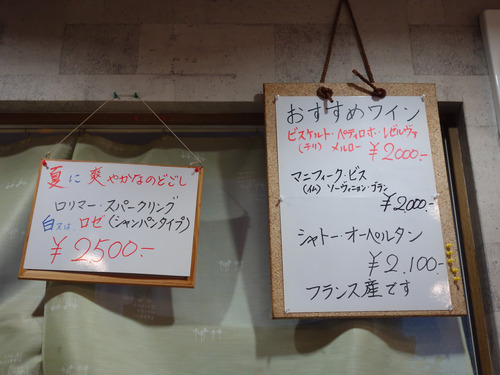 夏に爽やかなのどごし
ロリマー・スパークリング
白又はロゼ(シャンパンタイプ)
¥2500-
おすすめワイン
ビスケルト・ペティロホ・レゼルヴァ
(チリ) メルロー ¥2000-
マニフィーク・ビス
ソーヴィニョン・ブラン
¥2000-
シャトー・オーペルタン
¥2.100-
フランス産です